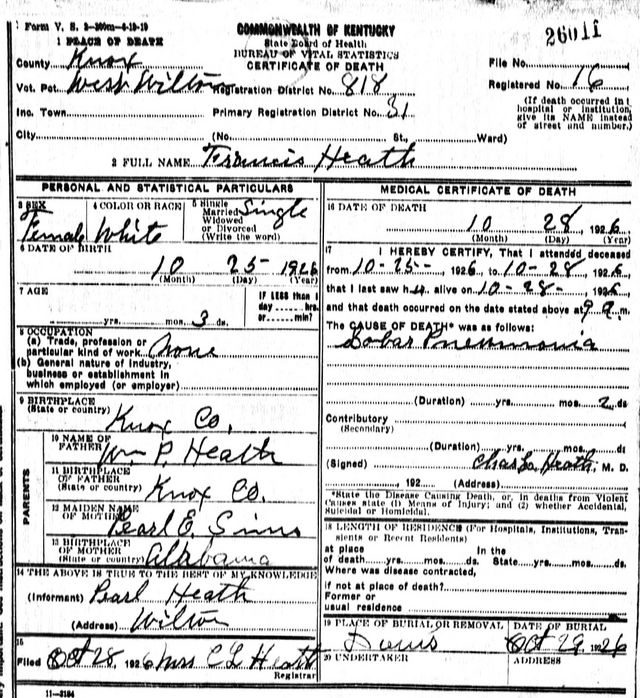 Form V. S. 3-200m-4-19-19
26011
COMMONWEALTH OF KENTUCKY
State Board of Health
BUREAU OF VITAL STATISTICS
CERTIFICATE OF DEATH
1 PLACE OF DEATH
County Knox
File No.
Vot. Pct. West Wilton Registration District No. 818
Registered No. 16
Inc. Town Primary Registration District No. 31
(If death occurred in a hospital or institution, give its NAME instead of street and number.)
City (No. St., Ward)
2 FULL NAME Francis Heath
PERSONAL AND STATISTICAL PARTICULARS
3 SEX Female
4 COLOR OR RACE White
5 Single Married Widowed or Divorced (Write the word) Single
6 DATE OF BIRTH
10 25 1926
(Month) (Day) (Year)
7 AGE
yrs. mos. 3 ds.
IF LESS than 1 day hrs. or min?
8 OCCUPATION
(a) Trade, profession or particular kind of work None
(b) General nature of industry, business or establishment in which employed (or employer)
9 BIRTHPLACE
(State or country) Knox Co.
PARENTS
10 NAME OF FATHER Wm P. Heath
11 BIRTHPLACE OF FATHER
(State or country) Knox Co.
12 MAIDEN NAME OF MOTHER Pearl E. Sims
13 BIRTHPLACE OF MOTHER
(State or country) Alabama
14 THE ABOVE IS TRUE TO THE BEST OF MY KNOWLEDGE
(Informant) Pearl Heath
(Address) Wilton
15
Filed Oct 28, 1926 Mrs C L Heath
Registrar
11-3184
MEDICAL CERTIFICATE OF DEATH
16 DATE OF DEATH
10 28, 1926
(Month) (Day) (Year)
17 I HEREBY CERTIFY, That I attended deceased
from 10-25- 1926, to 10-28, 1926,
that I last saw h alive on 10-28- 1926
and that death occurred on the date stated above at 9 m.
The CAUSE OF DEATH* was as follows:
Lobar Pneumonia
(Duration) yrs. mos. 2 ds
Contributory
(Secondary)
(Duration) yrs. mos. ds
(Signed) Chas L. Heath, M. D.
, 192 (Address)
*State the Disease Causing Death, or, in deaths from Violent Causes state (1) Means of Injury; and (2) whether Accidental, Suicidal or Homicidal.
18 LENGTH OF RESIDENCE (For Hospitals, Institutions, Transients or Recent Residents)
at place of death yrs. mos. ds. In the State yrs. mos. ds.
Where was disease contracted,
if not at place of death?
Former or
usual residence
19 PLACE OF BURIAL OR REMOVAL
DATE OF BURIAL
Oct 29, 1926
20 UNDERTAKER
ADDRESS